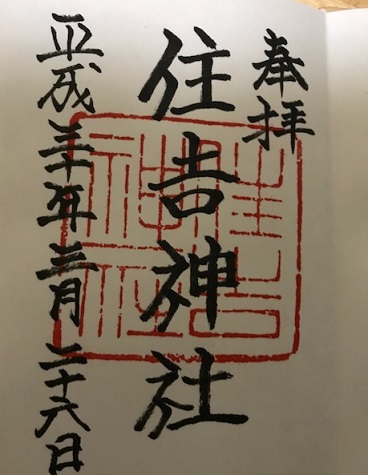 奉拝
住吉神社
平成三十年三月二十六日
住吉神社